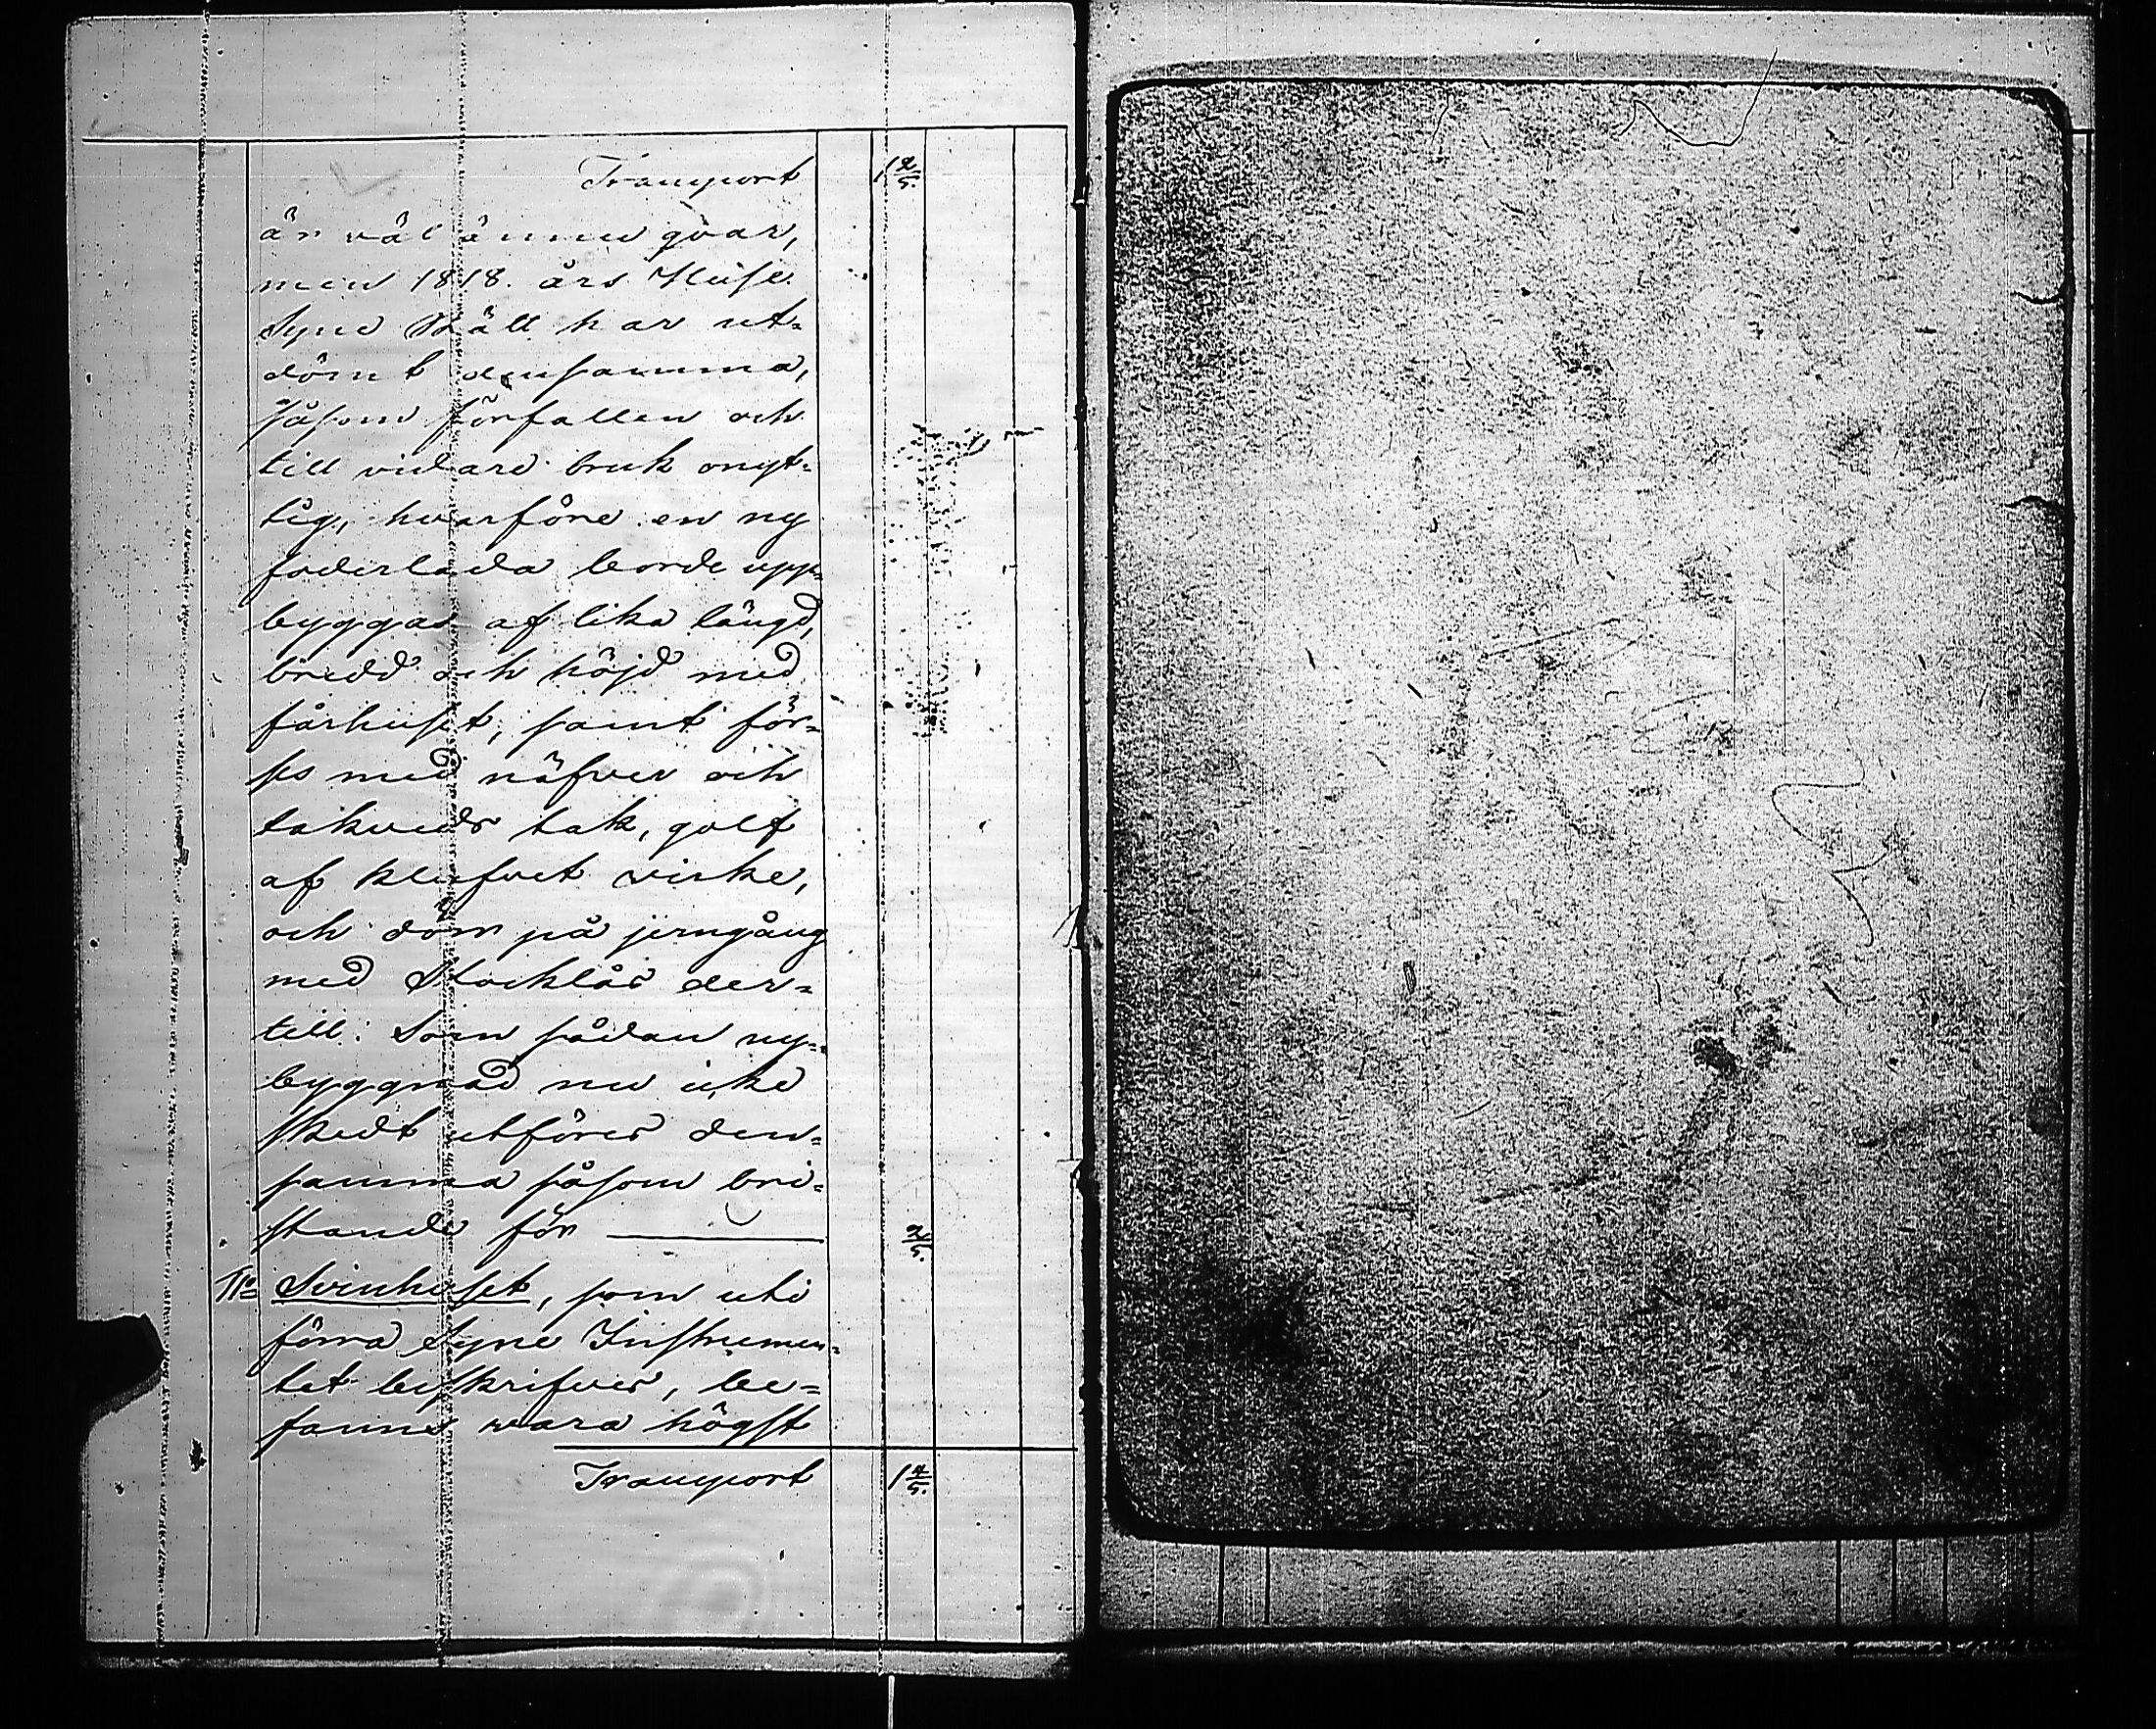 Transport 1 2/5.
är väl ännu qvar,
men 1818. års Huse
Syne Rätt har ut=
dömt densamma,
såsom förfallen och
till vidare bruk onyt=
tig, hvarföre en ny
foderlada borde upp=
byggas af lika längd,
bredd och höjd med
fårhuset, samt för=
ses med näfver och
takveds tak, golf
af klufvet virke,
och dörr på jerngång
med Stocklås der=
till. Som sådan ny=
byggnad nu icke
skedt utföres den=
samma såsom bri=
stande för 2/5.
11o Svinhuset, som uti
förra Syne Instrumen=
tet beskrifves, be=
fanns vara högst
Transport 1 4/5.